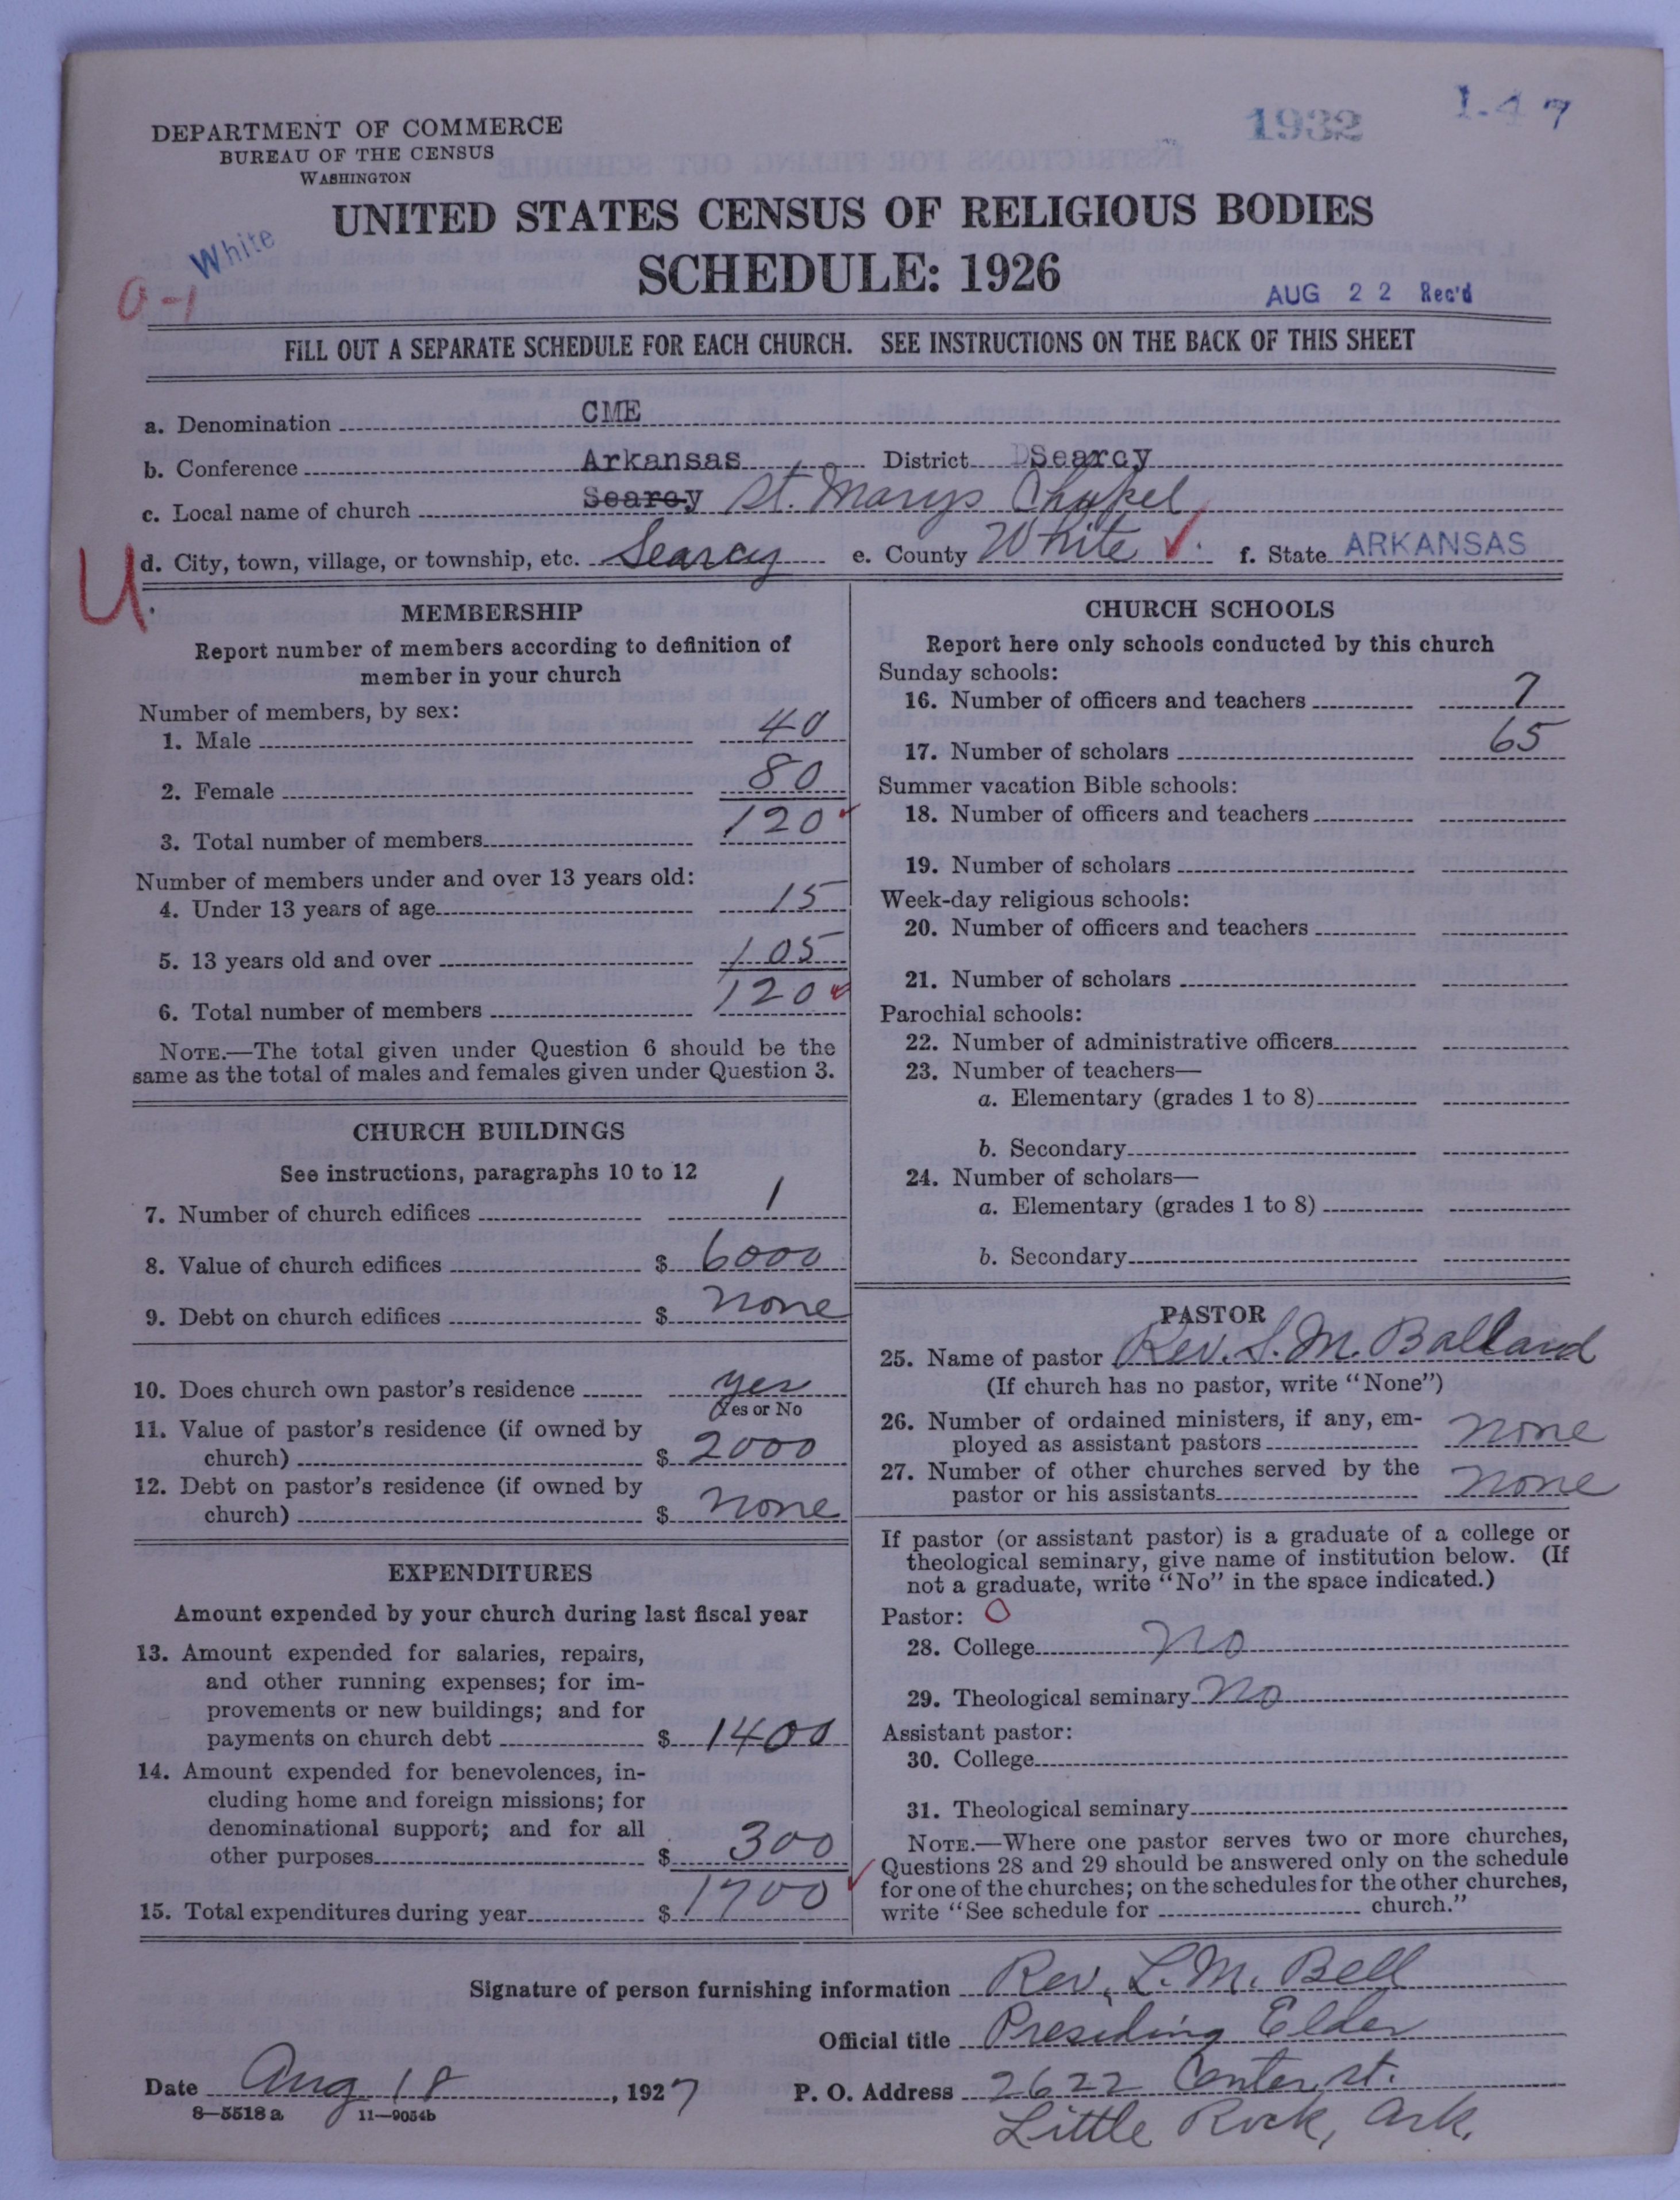 1932
1-47
DEPARTMENT OF COMMERCE
BUREAU OF THE CENSUS
WASHINGTON
UNITED STATES CENSUS OF RELIGIOUS BODIES
White
0-1
SCHEDULE: 1926
AUG 22 Rec'd
FILL OUT A SEPARATE SCHEDULE FOR EACH CHURCH. SEE INSTRUCTIONS ON THE BACK OF THIS SHEET
a. Denomination CME
b. Conference Arkansas District Searcy
c. Local name of church Searcy St. Marys Chapel
U
d. City, town, village, or township, etc. Searcy e. County White f. State ARKANSAS
MEMBERSHIP
Report number of members according to definition of
member in your church
Number of members, by sex:
1. Male 40
2. Female 80
3. Total number of members 120
Number of members under and over 13 years old:
4. Under 13 years of age 15
5. 13 years old and over 105
6. Total number of members 120
NOTE.—The total given under Question 6 should be the
same as the total of males and females given under Question 3.
CHURCH BUILDINGS
See instructions, paragraphs 10 to 12
7. Number of church edifices 1
8. Value of church edifices $ 6000
9. Debt on church edifices $ none
10. Does church own pastor's residence yes
Yes or No
11. Value of pastor's residence (if owned by
church) $ 2000
12. Debt on pastor's residence (if owned by
church) $ none
EXPENDITURES
Amount expended by your church during last fiscal year
13. Amount expended for salaries, repairs,
and other running expenses; for im-
provements or new buildings; and for
payments on church debt $ 1400
14. Amount expended for benevolences, in-
cluding home and foreign missions; for
denominational support; and for all
other purposes $ 300
15. Total expenditures during year $ 1700
CHURCH SCHOOLS
Report here only schools conducted by this church
Sunday schools:
16. Number of officers and teachers 7
17. Number of scholars 65
Summer vacation Bible schools:
18. Number of officers and teachers
19. Number of scholars
Week-day religious schools:
20. Number of officers and teachers
21. Number of scholars
Parochial schools:
22. Number of administrative officers
23. Number of teachers—
a. Elementary (grades 1 to 8)
b. Secondary
24. Number of scholars—
a. Elementary (grades 1 to 8)
b. Secondary
PASTOR
25. Name of pastor Rev. S. M. Ballard
(If church has no pastor, write "None")
26. Number of ordained ministers, if any, em-
ployed as assistant pastors none
27. Number of other churches served by the
pastor or his assistants none
If pastor (or assistant pastor) is a graduate of a college or
theological seminary, give name of institution below. (If
not a graduate, write "No" in the space indicated.)
Pastor: O
28. College no
29. Theological seminary no
Assistant pastor:
30. College
31. Theological seminary
NOTE.—Where one pastor serves two or more churches,
Questions 28 and 29 should be answered only on the schedule
for one of the churches; on the schedules for the other churches,
write "See schedule for church."
Signature of person furnishing information Rev. L. M. Bell
Official title Presiding Elder
Date Aug 18, 1927 P. O. Address 2622 Center st.
8—5518a 11—9054b
Little Rock, Ark.